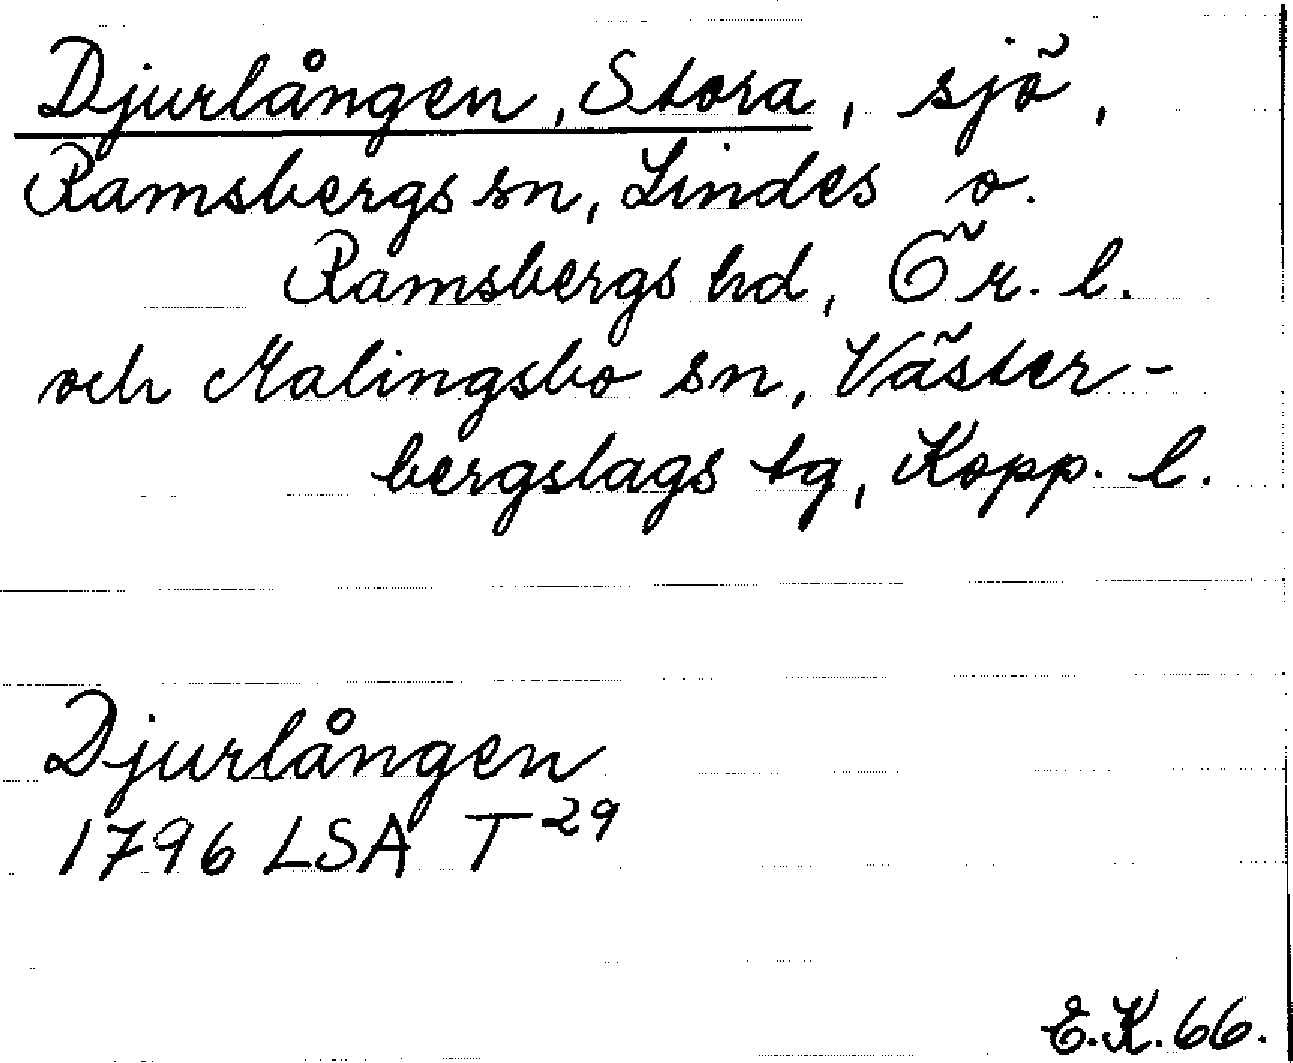 Djurlången, Stora, sjö,
Ramsbergs sn, Lindes o.
Ramsbergs hd, Ör. l.
och Malingsbo sn, Väster-
bergslags tg, Kopp. l.
Djurlången
1796 LSA T 29
E.K. 66.